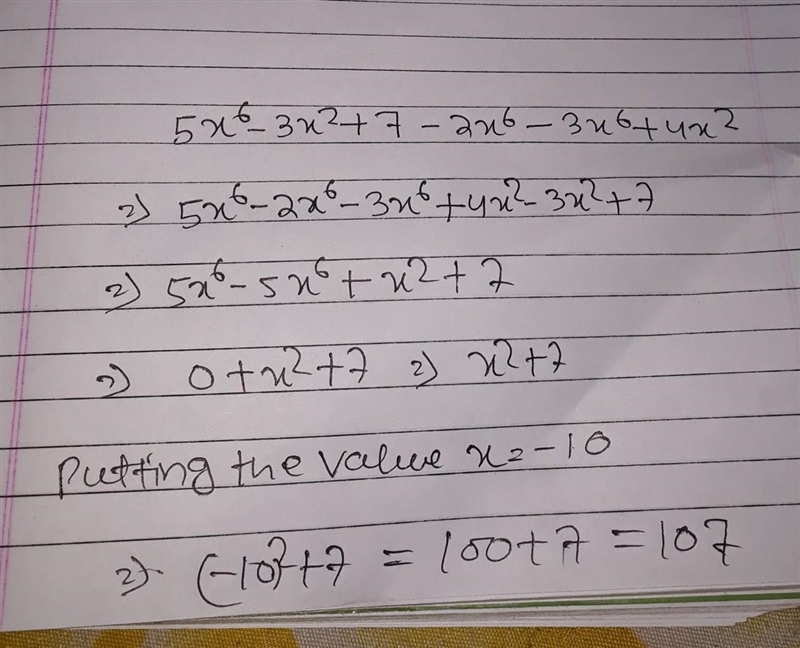 5x⁶ - 3x² + 7 - 2x⁶ - 3x⁶ + 4x²
⇒ 5x⁶ - 2x⁶ - 3x⁶ + 4x² - 3x² + 7
⇒ 5x⁶ - 5x⁶ + x² + 7
⇒ 0 + x² + 7 ⇒ x² + 7
Putting the value x = -10
⇒ (-10)² + 7 = 100 + 7 = 107